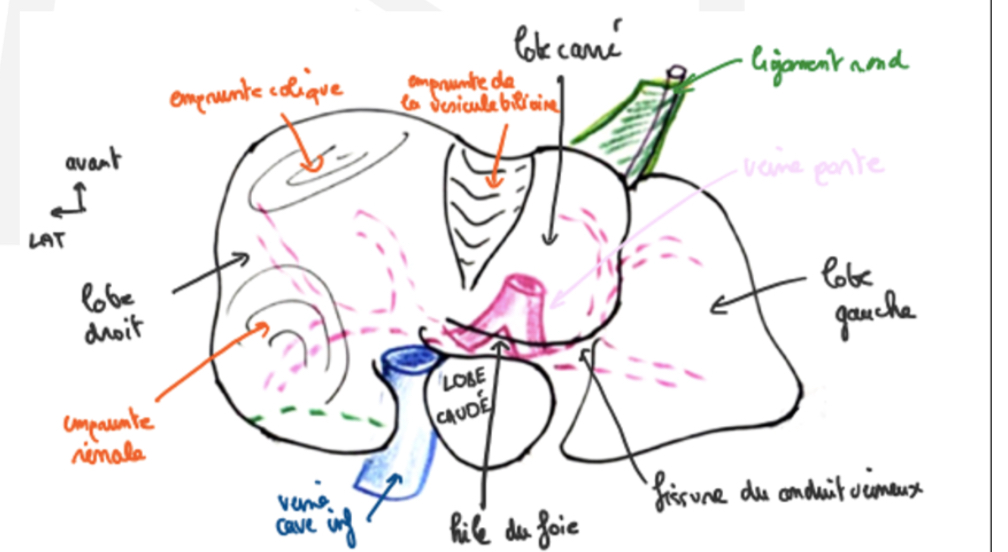 lobe carré
ligament rond
empreinte colique
empreinte de
la vésicule biliaire
avant
LAT
veine porte
lobe
droit
lobe
gauche
LOBE
CAUDÉ
empreinte
rénale
veine
cave inf
hile du foie
fissure du conduit veineux